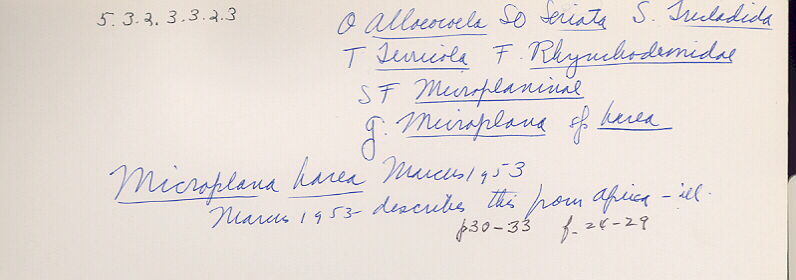 5.3.2.3.3.2.3
O Alloeocoela SO Seriata S. Tricladida
T Terricola F. Rhynchodemidae
SF Microplaninae
g. Microplana sp harea
Microplana harea Marcus 1953
Marcus 1953 - describes this from Africa - ill.
p30-33 f. 24-29